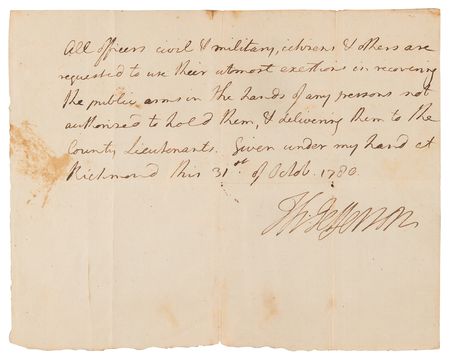 All officers civil & military, citizens & others are
requested to use their utmost exertions in recovering
the public arms in the hands of any persons not
authorised to hold them, & delivering them to the
County Lieutenants. Given under my hand at
Richmond this 31st of Octob. 1780.
Th: Jefferson